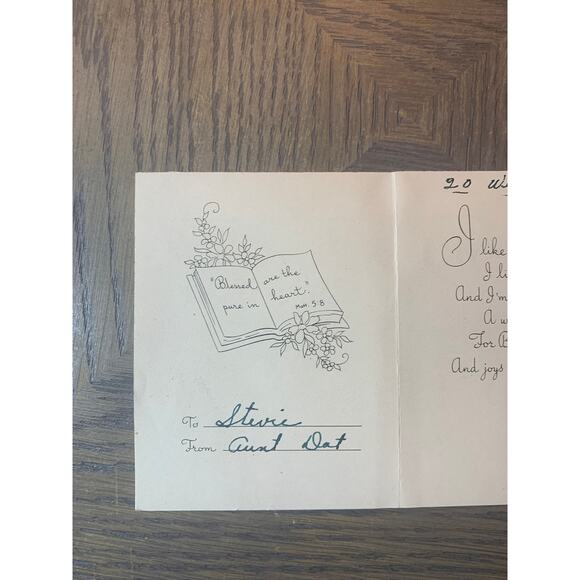 "Blessed are the
pure in heart."
Matt. 5:8
To Stevie
From Aunt Dot
20
I like
I li
And I'm
A w
For B
And joys